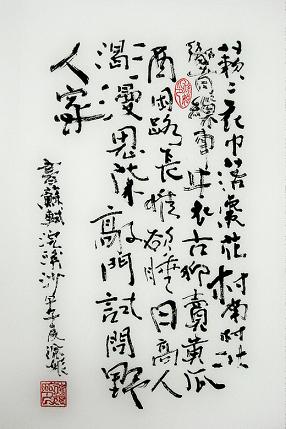 簌々衣巾落棗花村南村北
響繰車牛衣古柳賣黄瓜
酒困路長惟欲睡日高人
渴漫思茶敲門試問野
人家
書蘇軾浣溪沙甲午夏